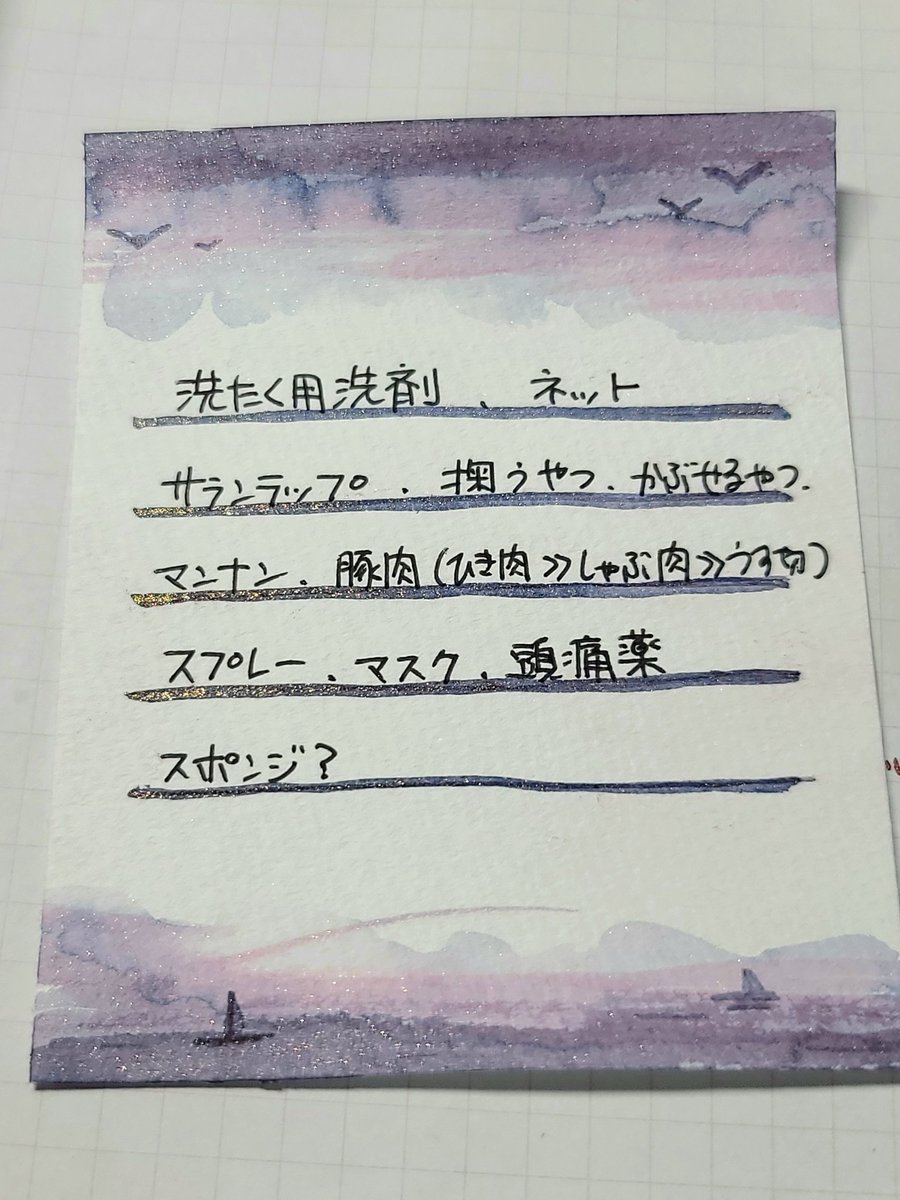 洗たく用洗剤、ネット
サランラップ、掬うやつ、かぶせるやつ、
マンナン、豚肉(ひき肉≫しゃぶ肉≫うす切)
スプレー、マスク、頭痛薬
スポンジ?